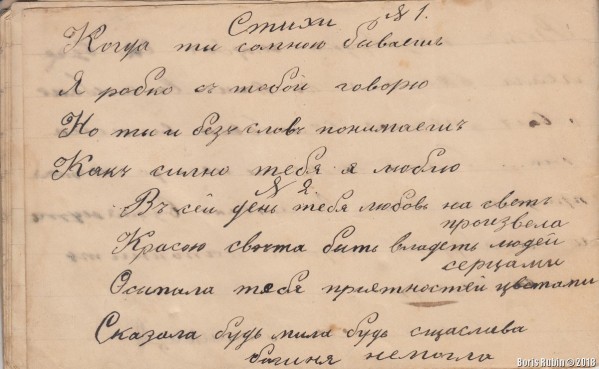 Стихи № 1.
Когда ты самною бываешь
Я робко съ тобой говорю
Но ты и безъ словъ понимаешь
Какъ силно тебя я люблю
№ 2.
Въ сей день тебя любовь на светъ
произвела
Красою свычта быть владеть людей
серцами
Осыпала тебя приятностей цветами
Сказала будь мила будь сщаслива
багиня немогла
Boris Rubin © 2018